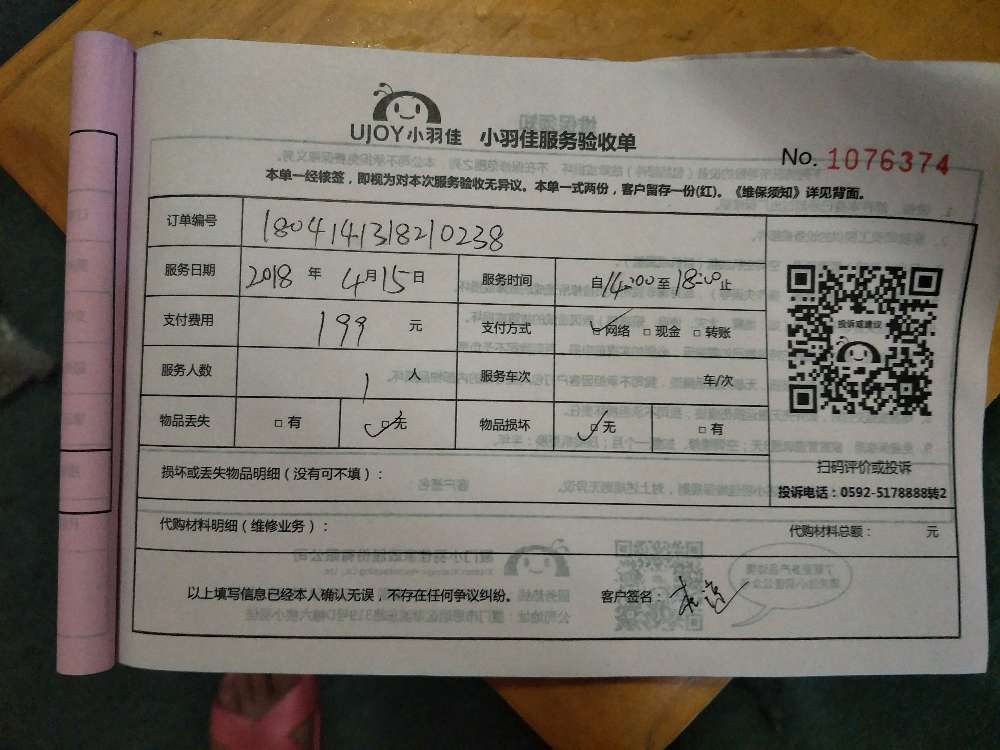 UJOY小羽佳 小羽佳服务验收单
No. 1076374
本单一经核签，即视为对本次服务验收无异议。本单一式两份，客户留存一份(红)。《维保须知》详见背面。
订单编号 180414318210238
服务日期 2018 年 4月15日 服务时间 自14:00至18:00止
支付费用 199 元 支付方式 网络 现金 转账
投诉或建议
服务人数 1 人 服务车次 车/次
物品丢失 有 无 物品损坏 无 有
扫码评价或投诉
损坏或丢失物品明细（没有可不填）：
投诉电话：0592-5178888转2
代购材料明细（维修业务）： 代购材料总额： 元
以上填写信息已经本人确认无误，不存在任何争议纠纷。 客户签名：